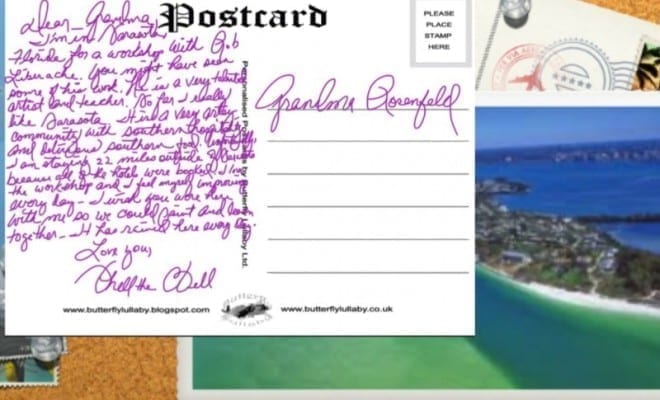 Postcard
PLEASE
PLACE
STAMP
HERE
Dear Grandma
I'm in Sarasota,
Florida for a workshop with
You might have seen
some of his work. He is a very talented
artist and teacher. So far I really
like Sarasota It is a very artsy
community with southern hospitality
and delicious southern food.
I am staying 22 miles outside of Sarasota
because all of the hotels were booked. I love
the workshop and I feel myself improving
every day I wish you were here
with me so we could paint and learn
together It has rained here every day.
Love you,
Grandma Rosenfeld
Personalised Postcards by Butterfly Lullaby Ltd.
www.butterflylullaby.blogspot.com
Butterfly
Lullaby
www.butterflylullaby.co.uk